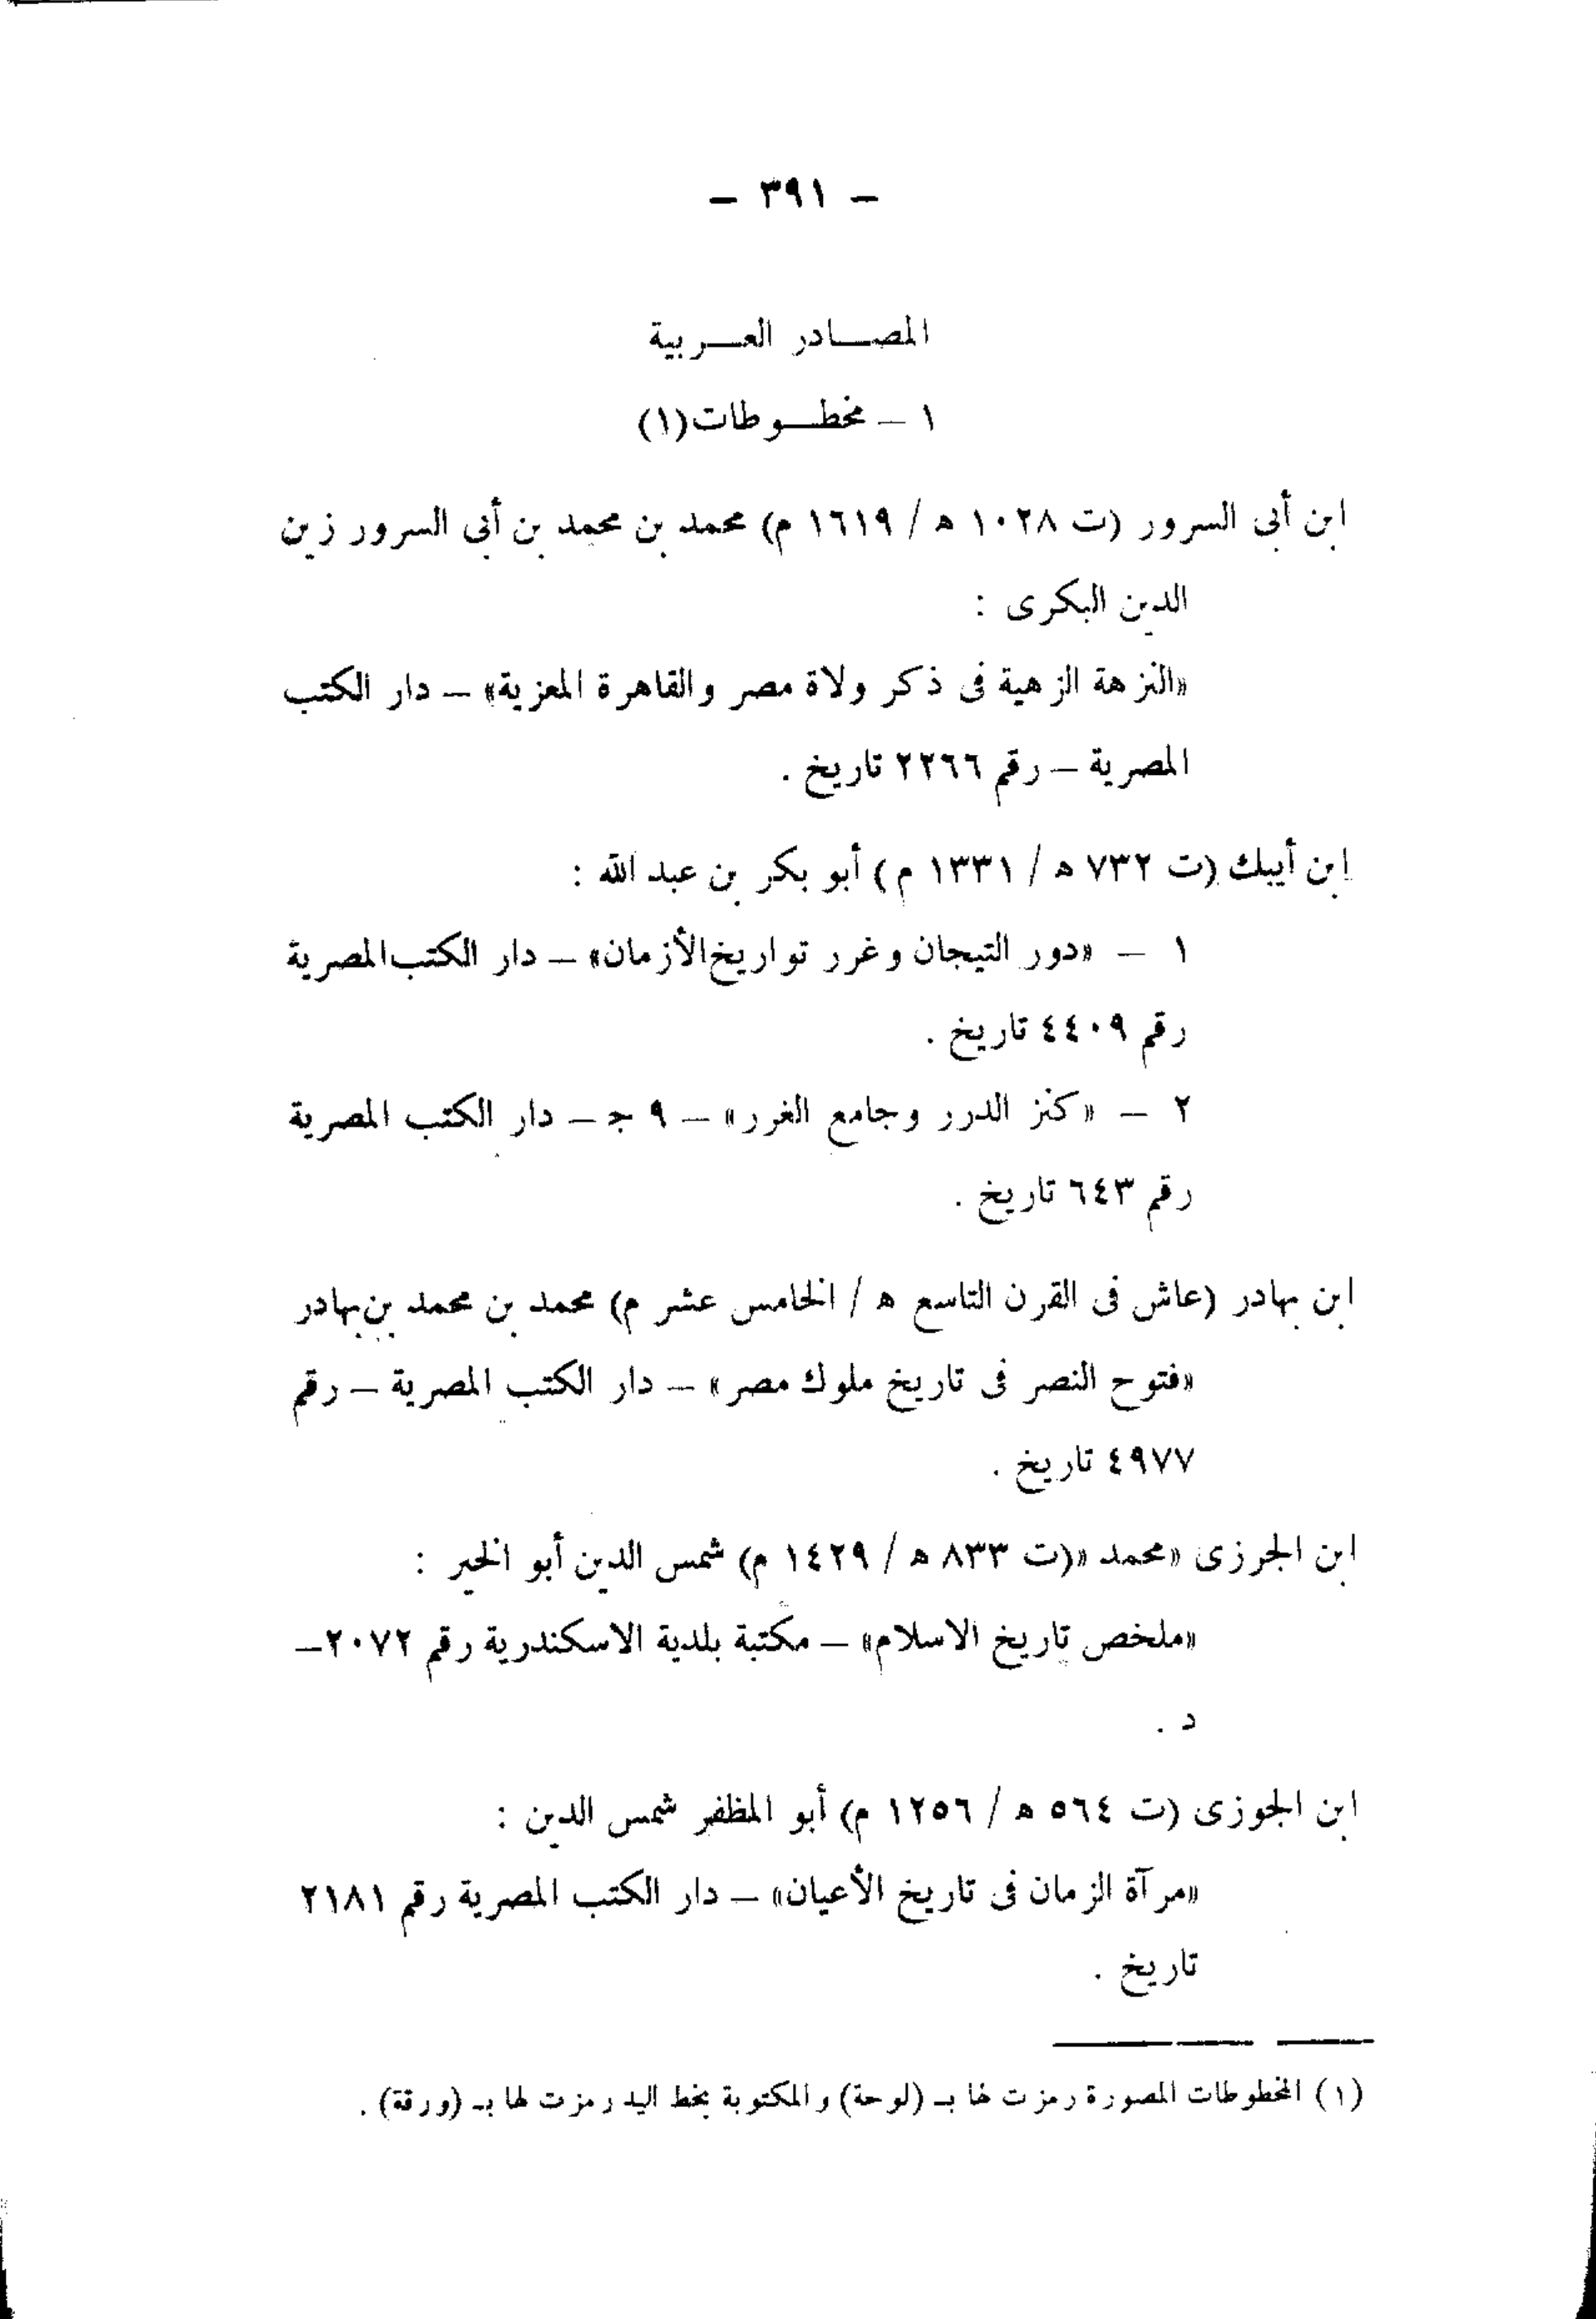 — ٣٩١ —
المصادر العربية
١ — مخطوطات(١)
ابن أبى السرور (ت ١٠٢٨ ه / ١٦١٩ م) محمد بن محمد بن أبى السرور زين
الدين البكرى :
«النزهة الزهية فى ذكر ولاة مصر والقاهرة المعزية» — دار الكتب
المصرية — رقم ٢٢٦٦ تاريخ .
ابن أيبك (ت ٧٣٢ ه / ١٣٣١ م) أبو بكر بن عبد الله :
١ — «دور التيجان وغرر تواريخ الأزمان» — دار الكتب المصرية
رقم ٤٤٠٩ تاريخ .
٢ — «كنز الدرر وجامع الغرر» — ٩ ج — دار الكتب المصرية
رقم ٦٤٣ تاريخ .
ابن بهادر (عاش فى القرن التاسع ه / الخامس عشر م) محمد بن محمد بن بهادر
«فتوح النصر فى تاريخ ملوك مصر» — دار الكتب المصرية — رقم
٤٩٧٧ تاريخ .
ابن الجرزى «محمد «(ت ٨٣٣ ه / ١٤٢٩ م) شمس الدين أبو الخير :
«ملخص تاريخ الاسلام» — مكتبة بلدية الاسكندرية رقم ٢٠٧٢—
د .
ابن الجوزى (ت ٥٦٤ ه / ١٢٥٦ م) أبو المظفر شمس الدين :
«مرآة الزمان فى تاريخ الأعيان» — دار الكتب المصرية رقم ٢١٨١
تاريخ .
(١) المخطوطات المصورة رمزت لها بـ (لوحة) والمكتوبة بخط اليد رمزت لها بـ (ورقة) .